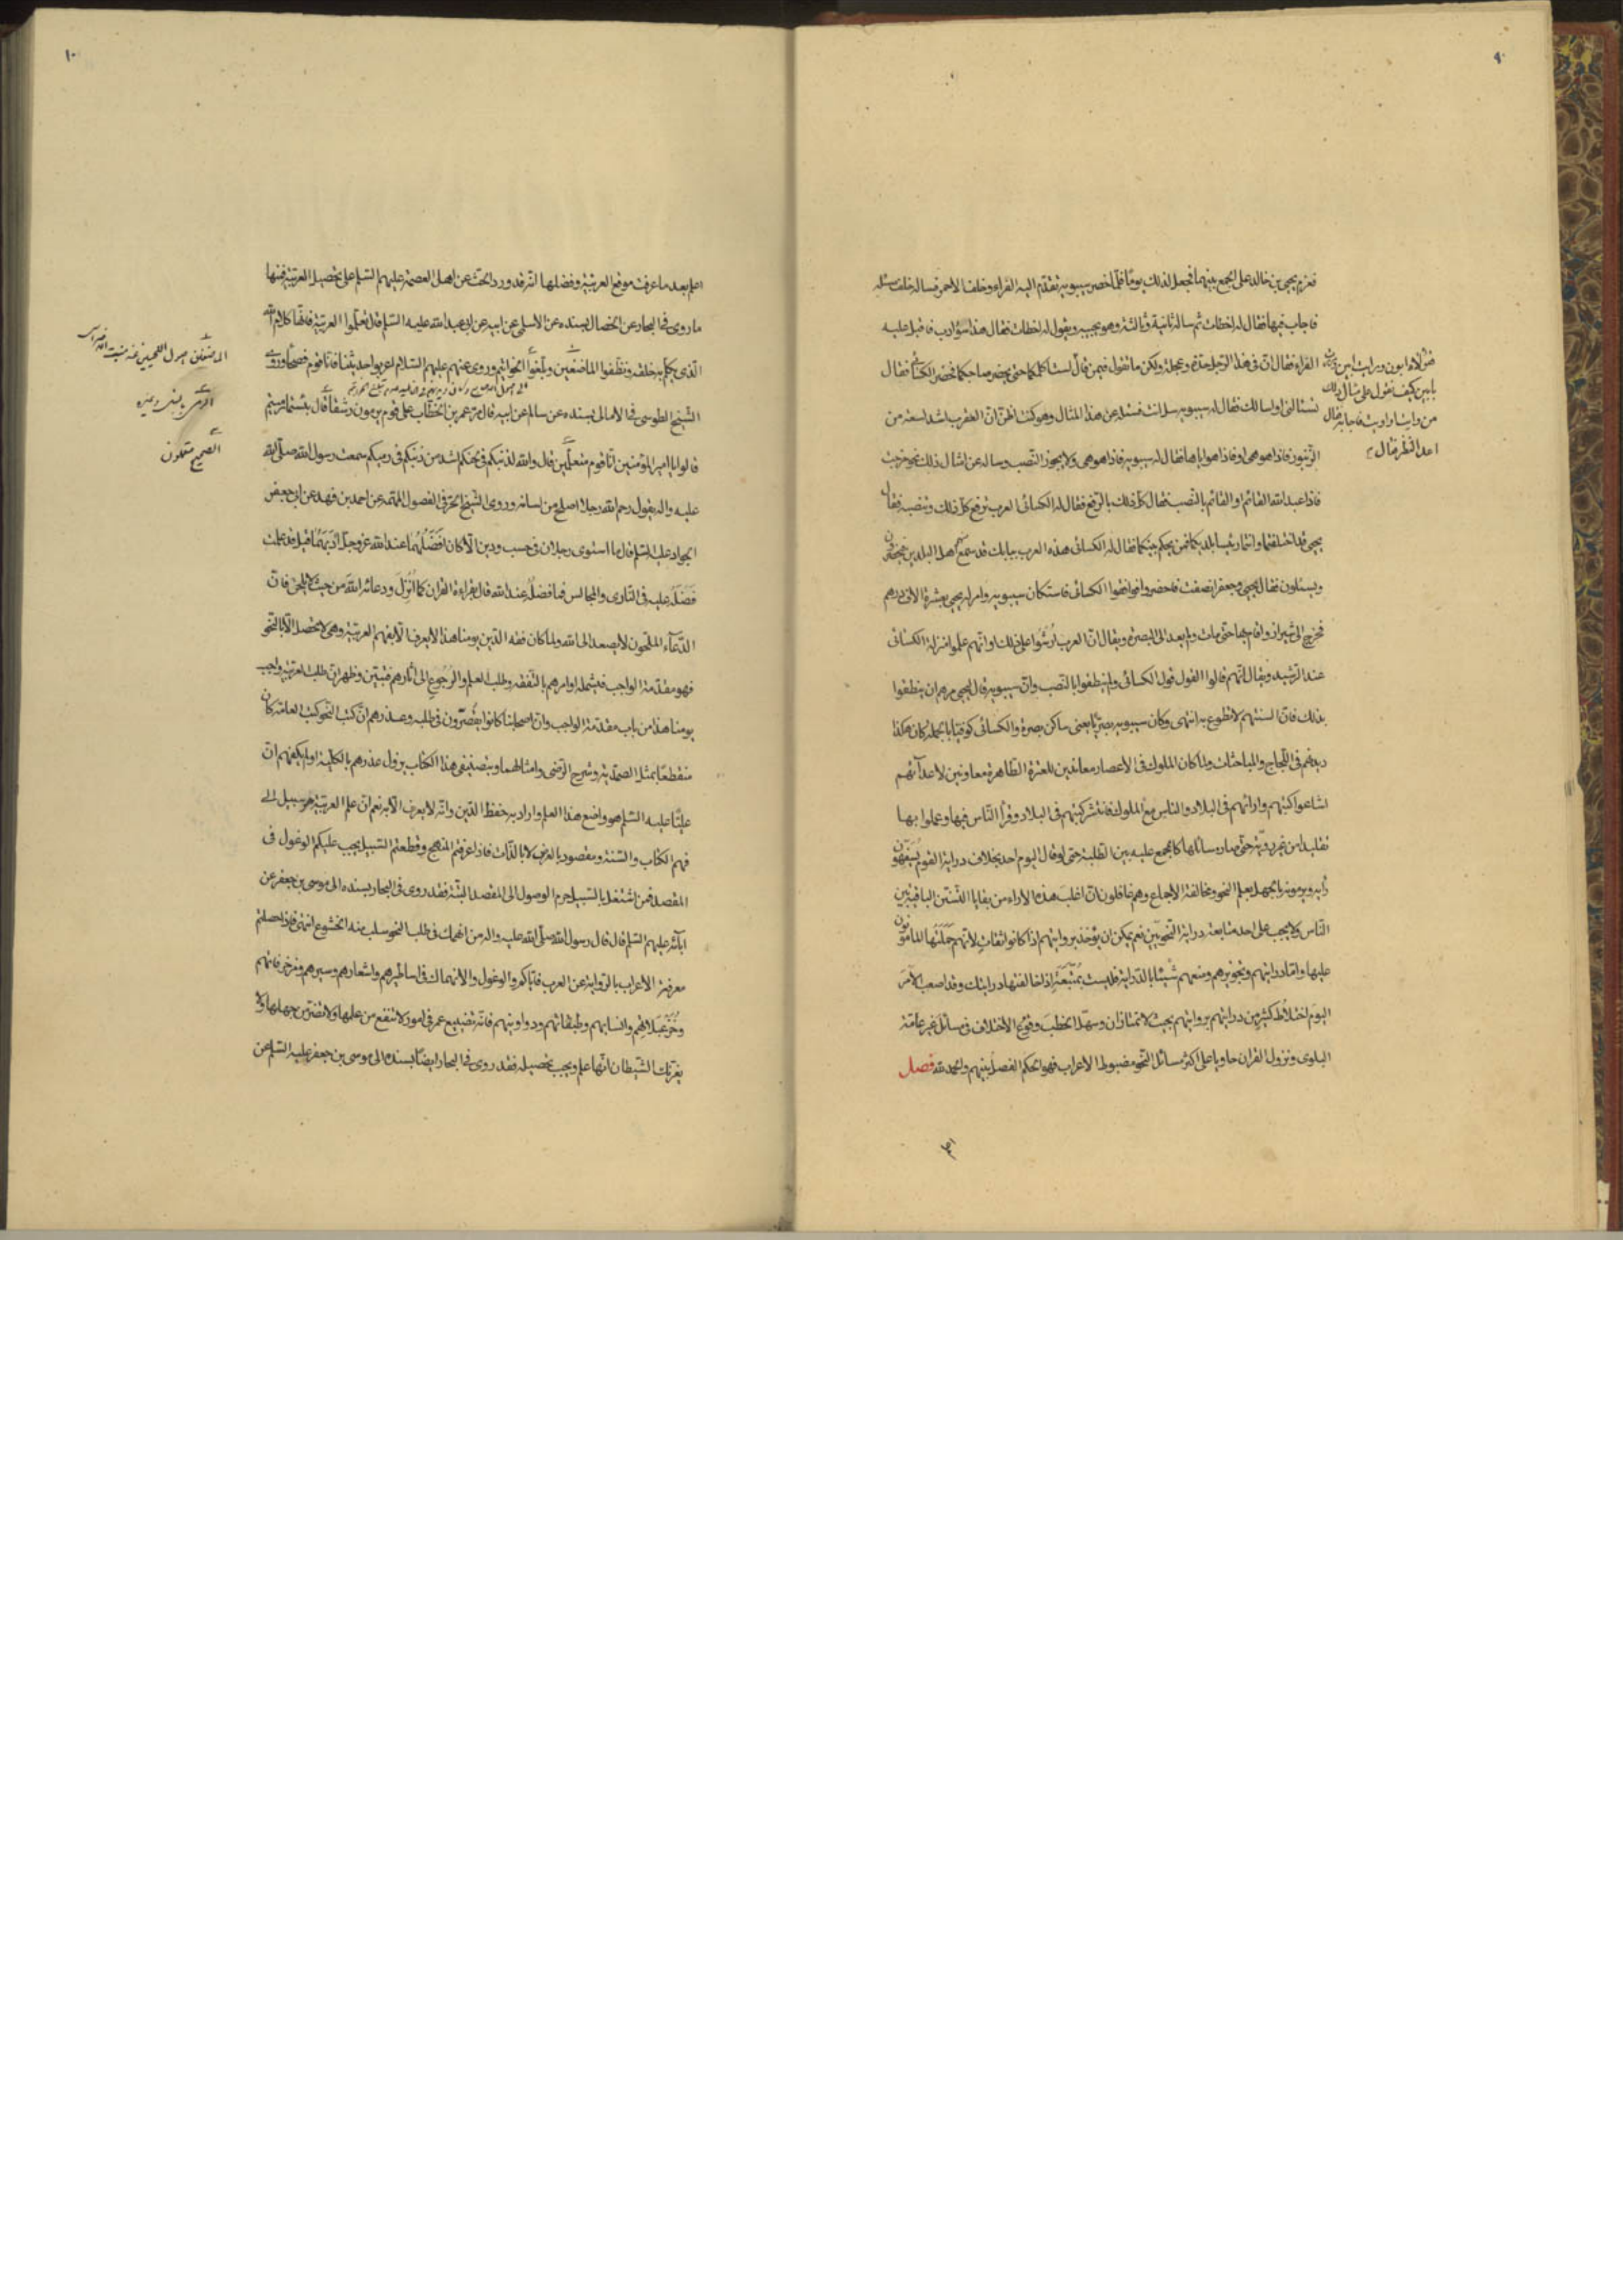 ٩
فعزم يحيى بن خالد على الجمع بينهما فجعل لذلك يوما فلما حضر سيبويه تقدم اليه الفراء وخلف الاحمر فساله خلف عن مسئلة
فاجاب فيها فقال له اخطات ثم ساله ثانية وثالثة وهو يجيبه ويقول له اخطات فقال هذا سوء ادب فاقبل عليه
الفراء فقال ان فى هذا الرجل حدة وعجلة ولكن ما تقول فيمن قال
هؤلاء ابون ومررت بابين
كيف تقول على مثال ذلك
من وايت او اويت فاجابه فقال
اعد النظر فقال
لست اكلمكما حتى يحضر صاحبكما فحضر الكسائى فقال
تسئالنى او اسالك فقال له سيبويه سل انت فسئله عن هذا المثال وهو كنت اظن ان العقرب اشد لسعة من
الزنبور فاذا هو هى او فاذا هو اياها فقال له سيبويه فاذا هو هى ولا يجوز النصب وساله عن امثال ذلك نحو خرجت
فاذا عبد الله القائم او القائم بالنصب فقال كل ذلك بالرفع فقال له الكسائى العرب ترفع كل ذلك وتنصبه فقال
يحيى قد اختلفتما وانتما رئيسا بلديكما فمن يحكم بينكما فقال له الكسائى هذه العرب ببابك قد سمع منهم اهل البلدين فيحضرون
ويسئلون فقال يحيى وجعفر انصفت فاحضروا فوافقوا الكسائى فاستكان سيبويه وامر له يحيى بعشرة الاف درهم
فخرج الى شيراز واقام بها حتى مات ولم يعد الى البصرة ويقال ان العرب ارشوا على ذلك او انهم علموا منزلة الكسائى
عند الرشيد ويقال انهم قالوا القول قول الكسائى ولم ينطقوا بالنصب وان سيبويه قال ليحيى مرهم ان ينطقوا
بذلك فان السنتهم لا تطوع به انتهى وكان سيبويه بصريا يعنى ساكن بصرة والكسائى كوفيا بالجملة كان هكذا
ديدنهم فى اللجاج والمباحثات ولما كان الملوك فى الاعصار معاندين للعترة الطاهرة معاونين لاعدائهم
اشاعوا كتبهم وارائهم فى البلاد والناس مع الملوك فانتشر كتبهم فى البلاد وقرا الناس فيها وعملوا بها
تقليدا من غير روية حتى صار مسائلها كالمجمع عليه بين الطلبة حتى لو قال اليوم احد بخلاف دراية القوم يسفهون
رايه ويرمونه بالجهل بعلم النحو ومخالفة الاجماع وهم غافلون ان اغلب هذه الاراء من بقايا السنتين الباقيتين
الناس ولا يجب على احد متابعة دراية النحويين نعم يمكن ان يؤخذ بروايتهم اذا كانوا ثقات لانهم حملتها المامونون
عليها واما درايتهم وتجويزهم ومنعهم شيئا بالدراية فليست بمتبعة اذا خالفتها درايتك وقد اصعب الامر
اليوم اختلاط كثير من درايتهم بروايتهم بحيث لا تمتازان وسهل الخطب وقوع الاختلاف فى مسائل غير عامة
البلوى ونزول القران حاويا على اكثر مسائل النحو مضبوط الاعراب فهو الحكم الفصل بينهم والحمد لله فصل
اعلم
١٠
اعلم بعد ما عرفت موقع العربية وفضلها انه قد ورد الحث عن اهل العصمة عليهم السلام على تحصيل العربية فمنها
ما روى فى البحار عن الخصال بسنده عن الاسلمى عن ابيه عن ابى عبد الله عليه السلام قال تعلموا العربية فانها كلام الله
الذى يكلم به خلقه ونظفوا الماضغين وبلغوا بالخواتيم وروى عنهم عليهم السلام اعربوا حديثنا فانا قوم فصحاء وروى
الشيخ الطوسى فى الامالى بسنده عن سالم عن ابيه قال مر عمر بن الخطاب على قوم يرمون رشقا قال بئسما رميتم
قالوا يا امير المؤمنين انا قوم متعلمين قال والله لذنبكم فى لحنكم اشد من ذنبكم فى رميكم سمعت رسول الله صلى الله
عليه واله يقول رحم الله رجلا اصلح من لسانه وروى الشيخ الحر فى الفصول المهمة عن احمد بن فهد عن ابى جعفر
الجواد عليه السلام قال ما استوى رجلان فى حسب ودين الا كان افضلهما عند الله عز وجل ادبهما قيل قد علمت
فضله عليه فى النادى والمجالس فما فضله عند الله قال بقراءة القران كما انزل ودعائه الله من حيث لا يلحن فان
الدعاء الملحون لا يصعد الى الله ولما كان فقه الدين يومنا هذا لا يعرف الا بفهم العربية وهى لا تحصل الا بالنحو
فهو مقدمة الواجب فيشمله اوامرهم بالتفقه وطلب العلم والرجوع الى اثارهم فتبين وظهر ان طلب العربية واجب
يومنا هذا من باب مقدمة الواجب وان اصحابنا كانوا يقصرون فى طلبه وعذرهم ان كتب النحو كتب العامة كان
منقطعا بمثل الصمدية وشرح الرضى وامثالهما وبتصنيفى هذا الكتاب يزول عذرهم بالكلية او لم يكفهم ان
عليا عليه السلام هو واضع هذا العلم واراد به حفظ الدين وانه لا يعرف الا به نعم ان علم العربية هو سبيل الى
فهم الكتاب والسنة ومقصود بالعرض لا بالذات فاذا عرفتم المنهج وقطعتم السبيل يجب عليكم الوغول فى
المقصد فمن اشتغل بالسبيل حرم الوصول الى المقصد البتة فقد روى فى البحار بسنده الى موسى بن جعفر عن
ابائه عليهم السلام قال قال رسول الله صلى الله عليه واله من انهمك فى طلب النحو سلب منه الخشوع انتهى فاذا حصلتم
معرفة الاعراب بالرواية عن العرب فاياكم والوغول والانهماك فى اساطيرهم واشعارهم وسيرهم وزخرفاتهم
وانسابهم وطبقاتهم ودواوينهم فانه تضييع عمر فى امور لا تنتفع من علمها ولا تتضرر من جهلها ولا
يغرنك الشيطان انها علم ويجب تحصيله فقد روى فى البحار ايضا بسنده الى موسى بن جعفر عليه السلام عن
الماضغان اصول اللحيين عند منبت الاضراس
الرشق
الصحيح متعلمون